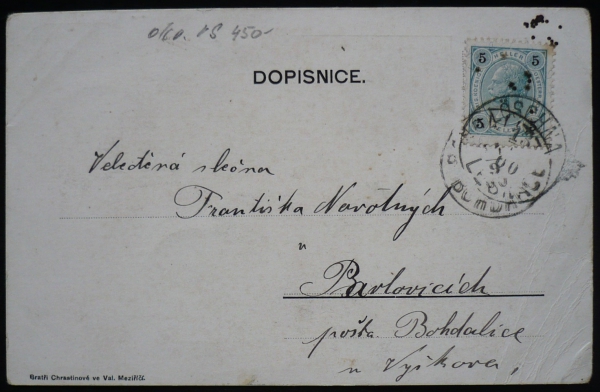 DOPISNICE.
5 HELLER 5
5
Veleděná slečna
Františka Novotných
u
Pavlovicích
pošta Bohdalice
u Vyškova,
Bratři Chrastinové ve Val. Meziříčí.